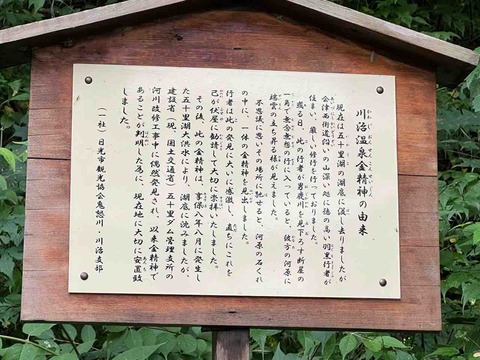 川治温泉金精神の由来
現在は五十里湖の湖底に儀し去りましたが
会津西街道沿いの山深い処に徳の高い羽黒行者が
住まい、厳しい修行を行っておりました。
或る日、此の行者が男鹿川を見下ろす断崖の
一角で無念無想の行に入っていると、彼方の河原に
瑞雲の立ち昇る様が見えました。
不思議に思いその場所に馳せると、河原の石くれ
の中に、一体の金精神を見出しました。
行者は此の発見に大いに感激し、直ちにこれを
己が伏屋に勧請して大切に崇拝いたしました。
その後、此の金精神は、享保八年八月に発生し
た五十里湖大洪水により、湖底に沈みましたが、
建設省(現、国土交通省)五十里ダム管理支所の
河川改修工事中に偶然発見され、以来金精神で
あることが判明した為に、現在地に大切に安置致
しました。
(一社)日光市観光協会鬼怒川・川治支部